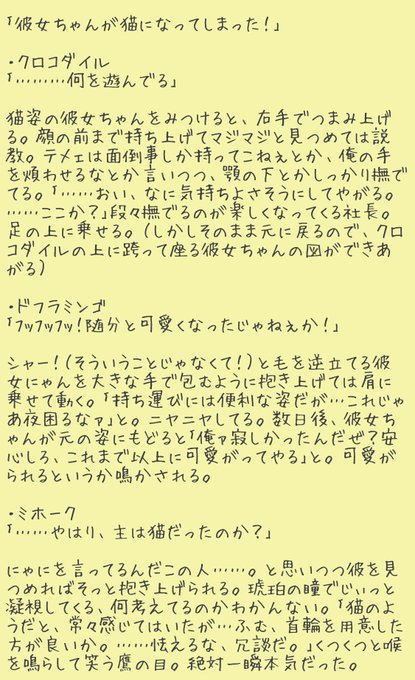 「彼女ちゃんが猫になってしまった！」
・クロコダイル
「………何を遊んでる」
猫姿の彼女ちゃんをみつけると、右手でつまみ上げ
る。顔の前まで持ち上げてマジマジと見つめては説
教。テメェは面倒事しか持ってこねぇとか、俺の手
を煩わせるなとか言いつつ、顎の下とかしっかり撫で
てる。「……おい、なに気持ちよさそうにしてやがる。
……ここか？」段々撫でるのが楽しくなってくる社長。
足の上に乗せる。（しかしそのまま元に戻るので、クロ
コダイルの上に跨って座る彼女ちゃんの図ができあ
がる）
・ドフラミンゴ
「フッフッフッ！随分と可愛くなったじゃねぇか！」
シャー！（そういうことじゃなくて！）と毛を逆立てる彼
女にゃんを大きな手で包むように抱き上げては肩に
乗せて動く。「持ち運びには便利な姿だが…これじゃ
あ夜困るなァ」と。ニヤニヤしてる。数日後、彼女ちゃ
んが元の姿にもどると「俺ァ寂しかったんだぜ？安
心しろ、これまで以上に可愛がってやる」と。可愛が
られるというか鳴かされる。
・ミホーク
「……やはり、主は猫だったのか？」
にゃにを言ってるんだこの人……。と思いつつ彼を見
つめればそっと抱き上げられる。琥珀の瞳でじぃっと
凝視してくる、何考えてるのかわかんない。「猫のよ
うだと、常々感じてはいたが…ふむ、首輪を用意した
方が良いか。……怯えるな、冗談だ。」くつくつと喉
を鳴らして笑う鷹の目。絶対一瞬本気だった。